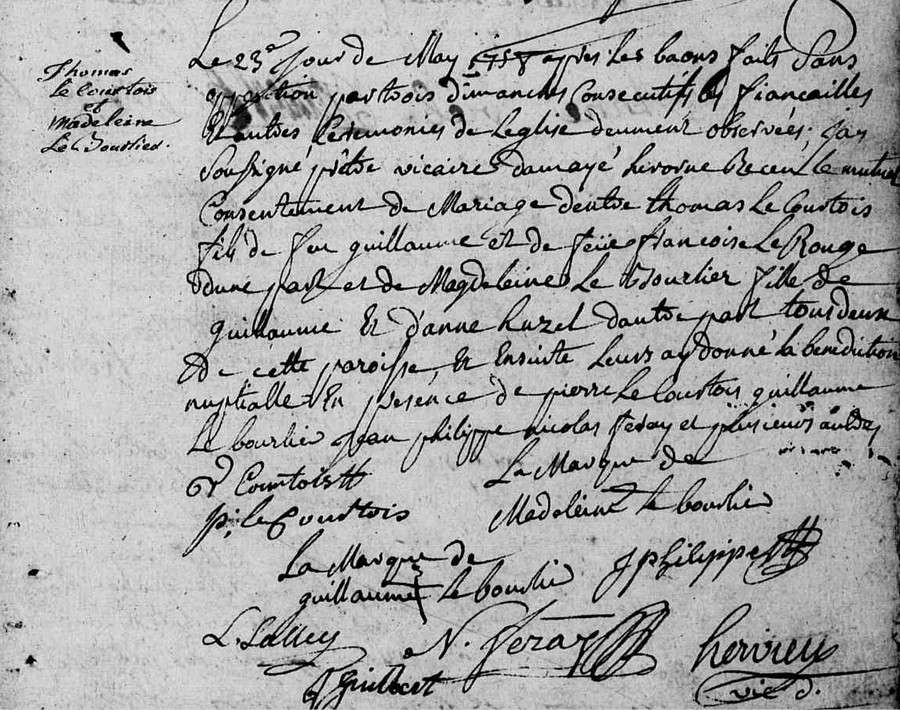 Thomas
le Courtois
et
Madeleine
Le Bourlier.
Le 23e jour de May 1758 apres les baons faits Sans
opposition partrois dimanches Consecutifs les fiancailles
Et autres Ceremonies de Leglise deument observées. jay
Soussigné prêtre vicaire damayé Receu le mutuel
Consentement de Mariage dentre thomas Le Courtois
fils de feu guillaume et de feüe francoise Le Rouge
dune part et de Magdeleine Le Bourlier fille de
guillaume Et d'anne huzel dautre part tous deux
de cette paroisse, Et Ensuite Leurs ay donné la benediction
nuptialle En presence de pierre Le Courtois guillaume
Le bourlier Jean philippe nicolas feray et plusieurs autres
Courtois La Marque de
p. le Courtois Madeleine le bourlier
La Marque de
guillaume le bourlier J philippe
N. feray hervieu
vic d.